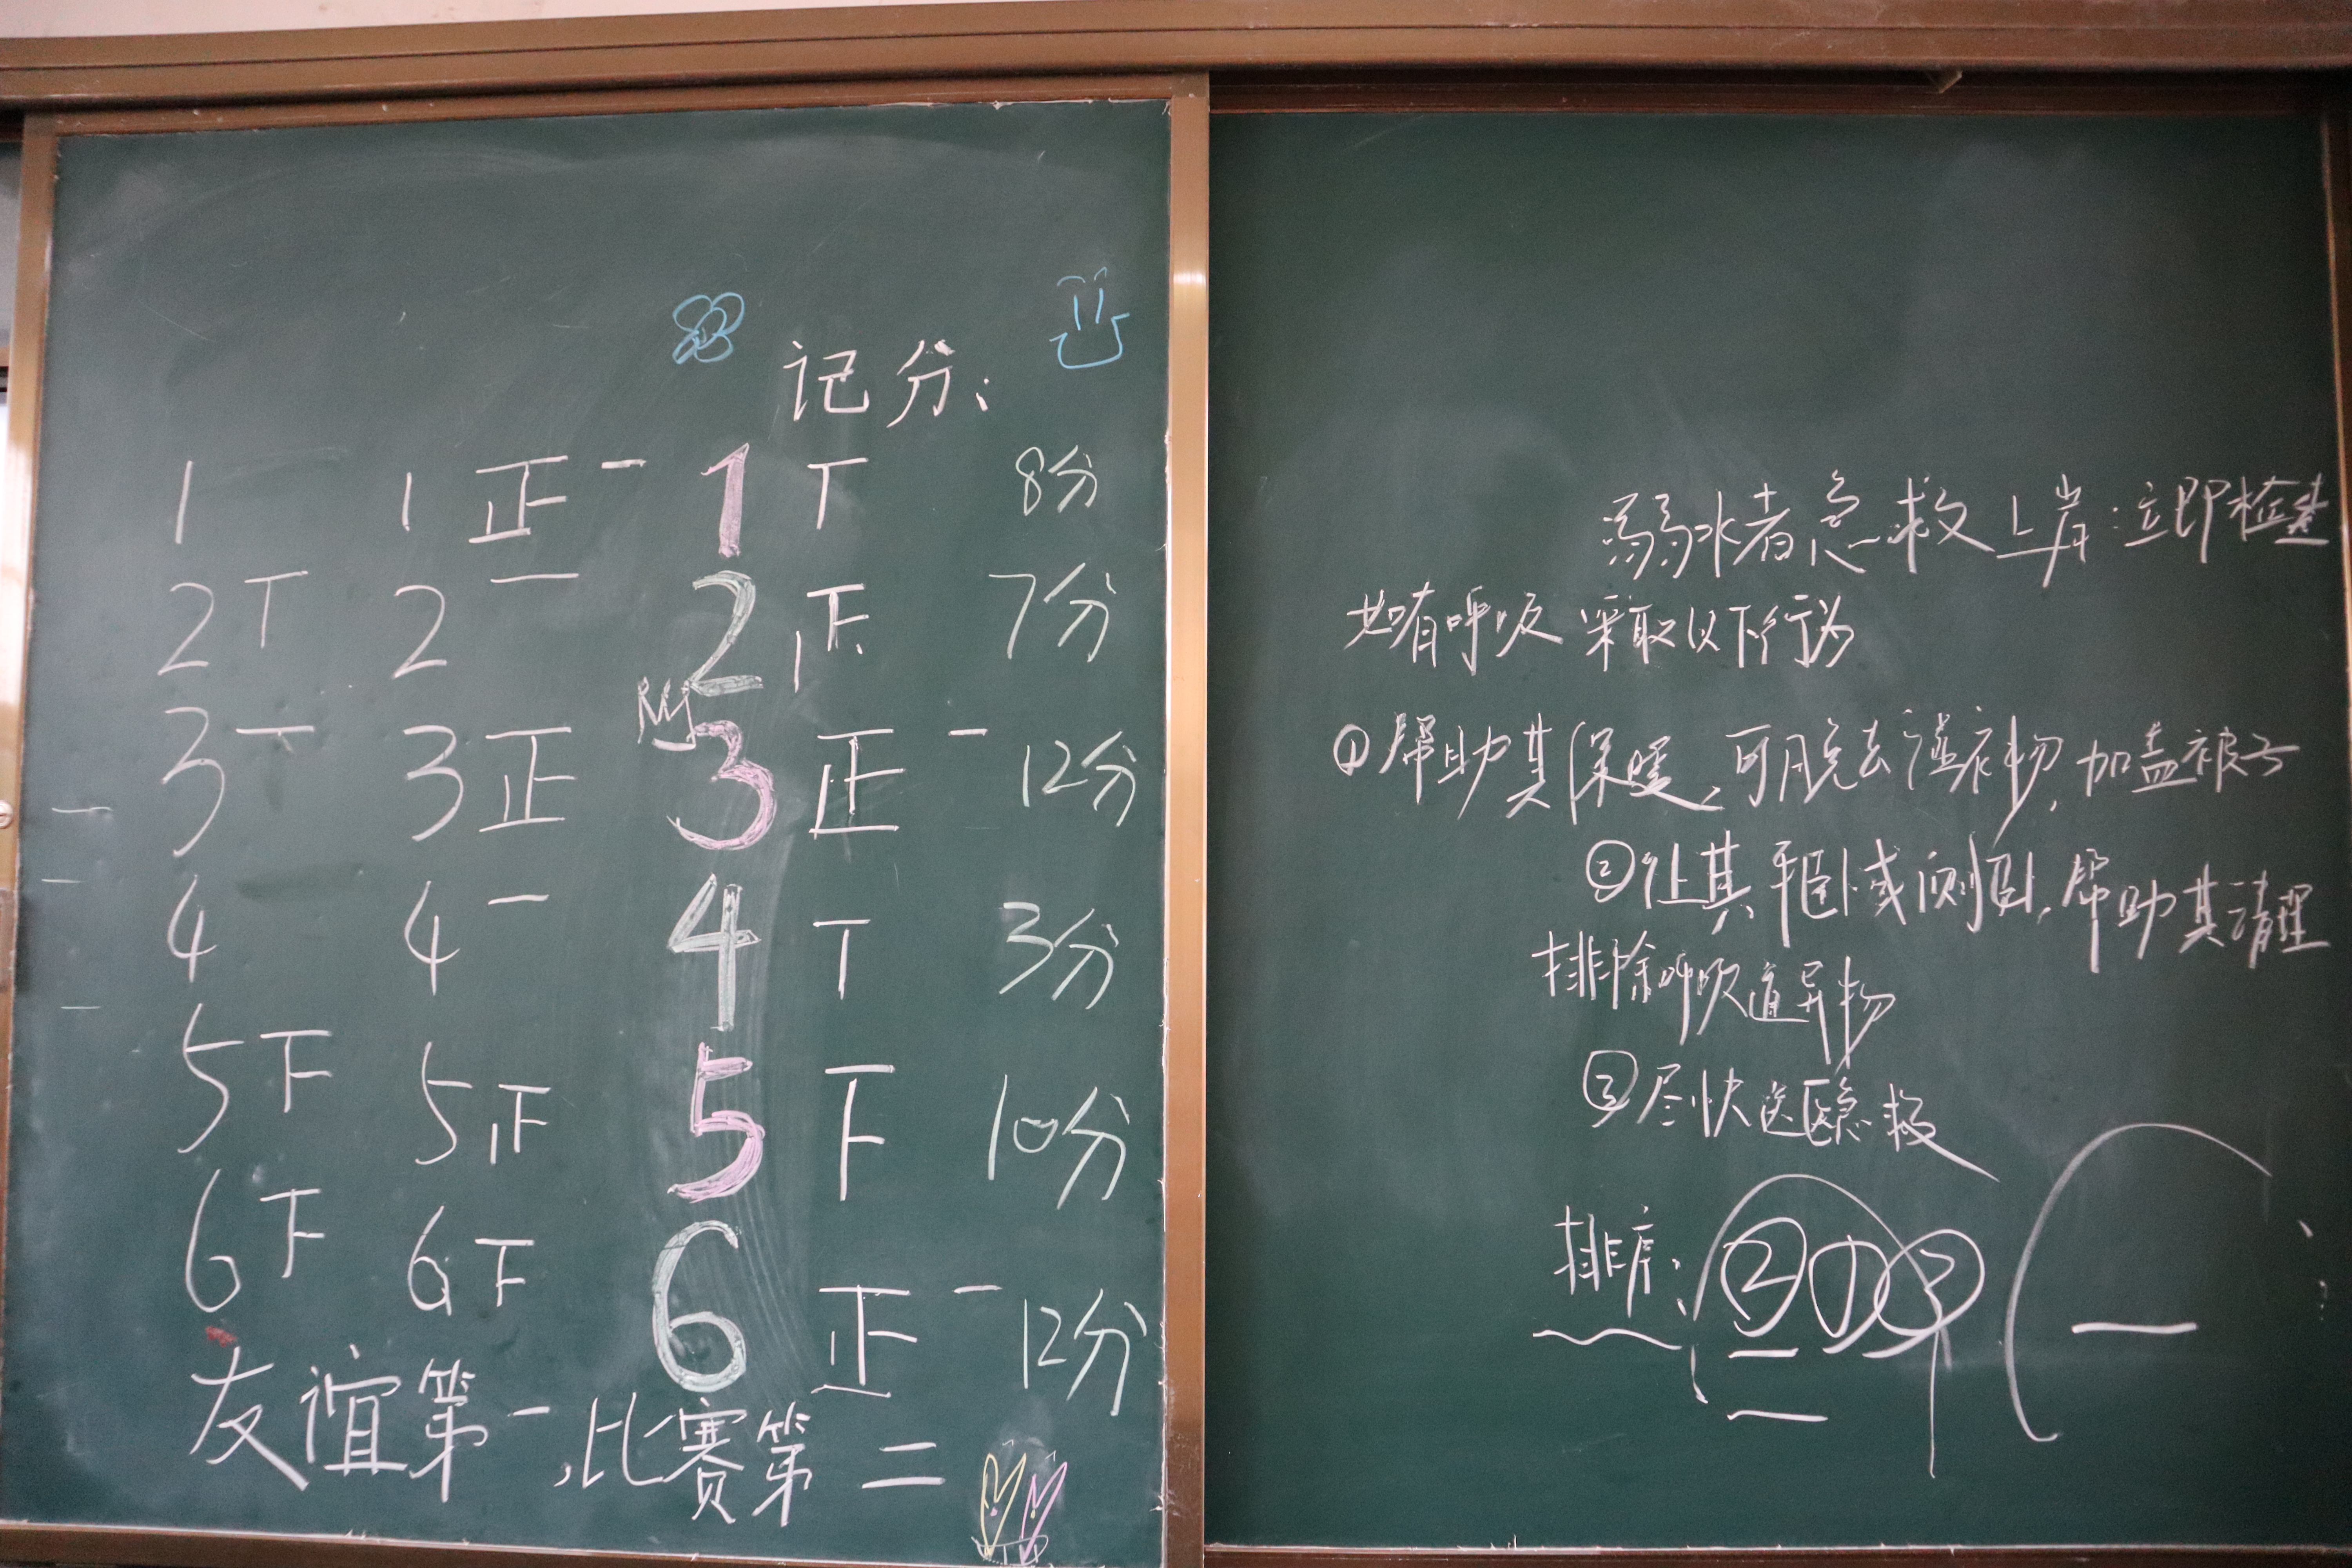 记分:
1 1 正一 1 丅 8分
2 丅 2 一 2 正 7分
3 丅 3 正 3 正一 12分
4 4 一 4 丅 3分
5 下 5 正 5 下 10分
6 下 6 下 6 正一 12分
友谊第一,比赛第二
溺水者急救上岸:立即检查
如有呼吸 采取以下行为
①帮助其保暖,可脱去湿衣物,加盖被子
②让其平卧或侧卧,帮助其清理
排除呼吸道异物
③尽快送医急救
排序:②①③